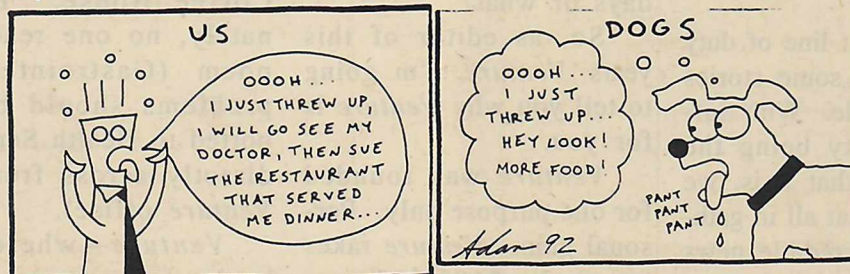 US
OOOH..
I JUST THREW UP,
I WILL GO SEE MY
DOCTOR, THEN SUE
THE RESTAURANT
THAT SERVED
ME DINNER...
DOGS
OOOH
I JUST
THREW UP...
HEY LOOK!
MORE FOOD!
PANT
PANT
PANT
92